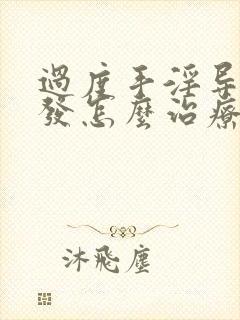 過度手淫导
發怎麽治療
沐飛塵